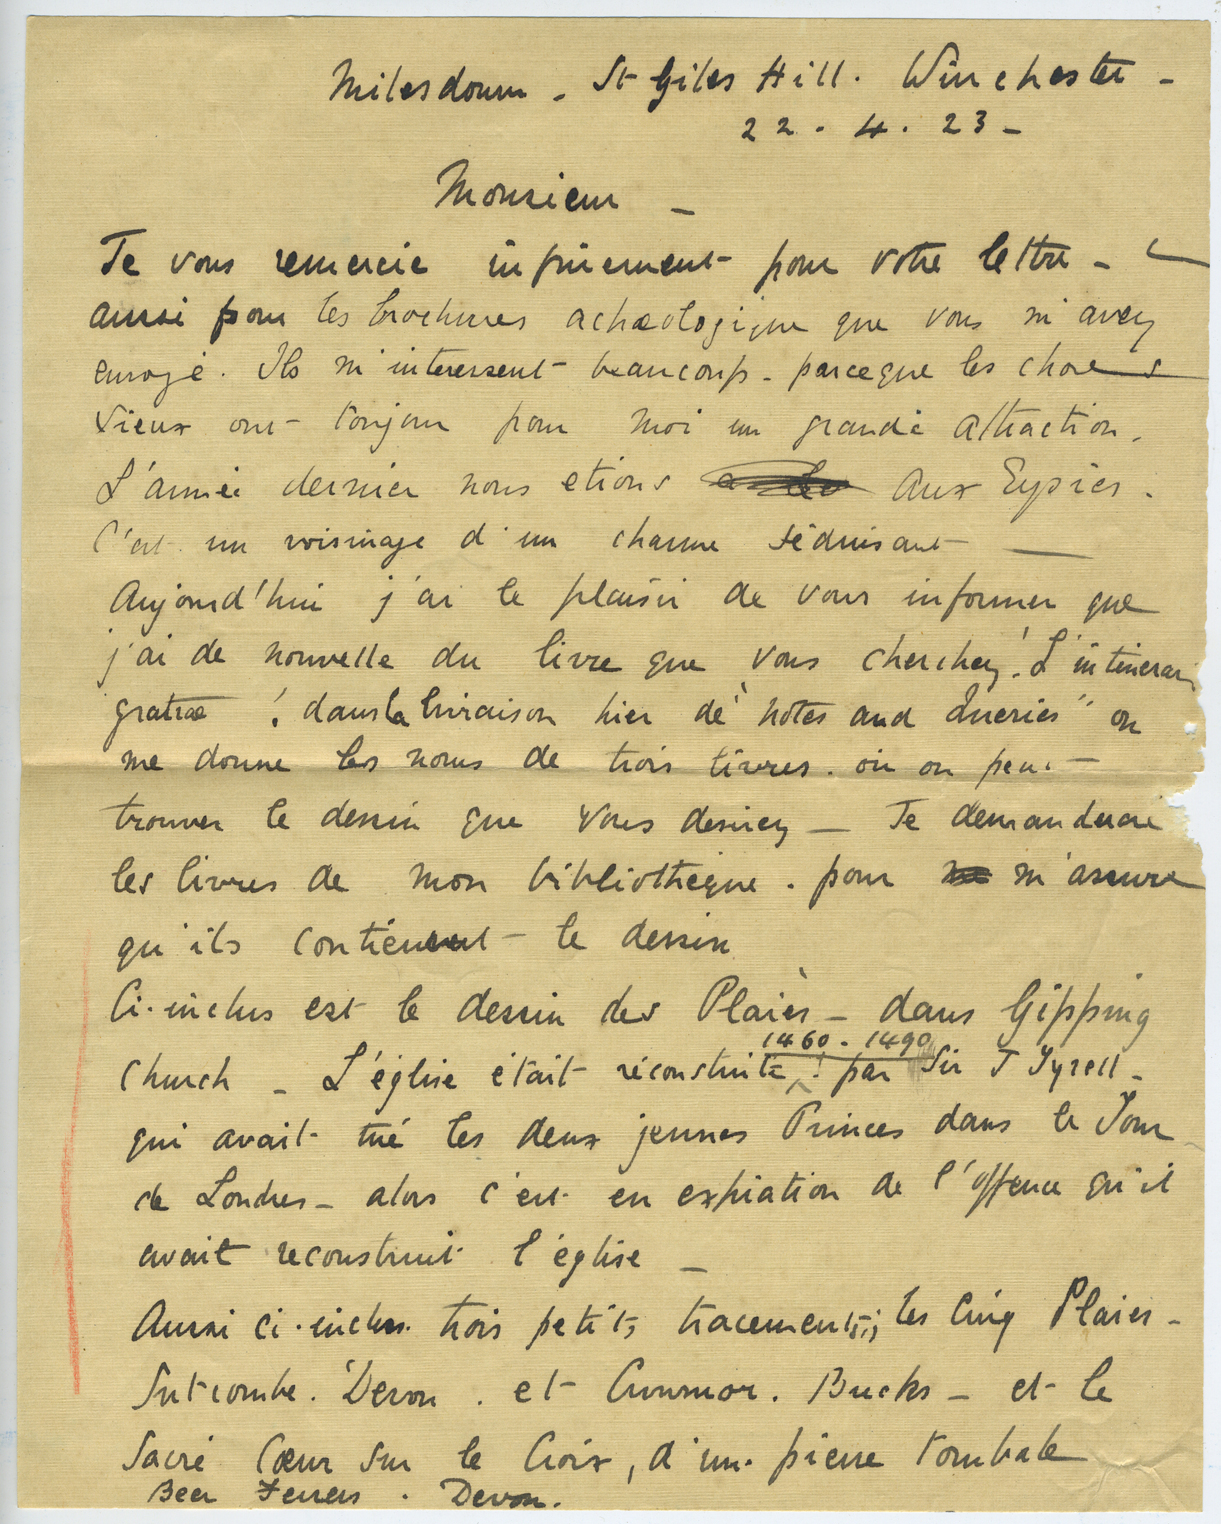 Milesdown - St Giles Hill. Winchester -
22. 4. 23 -
Monsieur -
Je vous remercie infiniement pour votre lettre -
aussi pour les brochures achæologique que vous m'avez
envoyé. Ils m'interessent beaucoup - parceque les choses
vieux ont toujour pour moi un grande attraction.
L'année dernier nous etions aux Eyzies.
C'est un voisinage d'un charme séduisant
Aujourd'hui j'ai le plaisir de vous informer que
j'ai de nouvelle du livre que vous cherchez! L'intinerari
gratiæ ! dans la livraison hier de "Notes and Queries" on
me donne les noms de trois livres. où on peut
trouver le dessin que vous desirez - Je demanderai
les livres de mon bibliothèque. pour m'assure
qu'ils contienent le dessin
Ci-inclus est le dessin des Plaies - dans Gipping
1460 - 1490
Church - L'église était réconstruite ! par Sir J Tyrell -
qui avait tué les deux jeunes Princes dans le Tour
de Londres - alors c'est en expiation de l'offence qu'il
avait reconstruit l'église -
Aussi ci-inclus. trois petits tracements; les Cinq Plaies -
Sutcombe. Devon. et Bucks - et le
Sacré Cœur sur le Croix, d'un pierre tombale
Beer Ferrers. Devon.